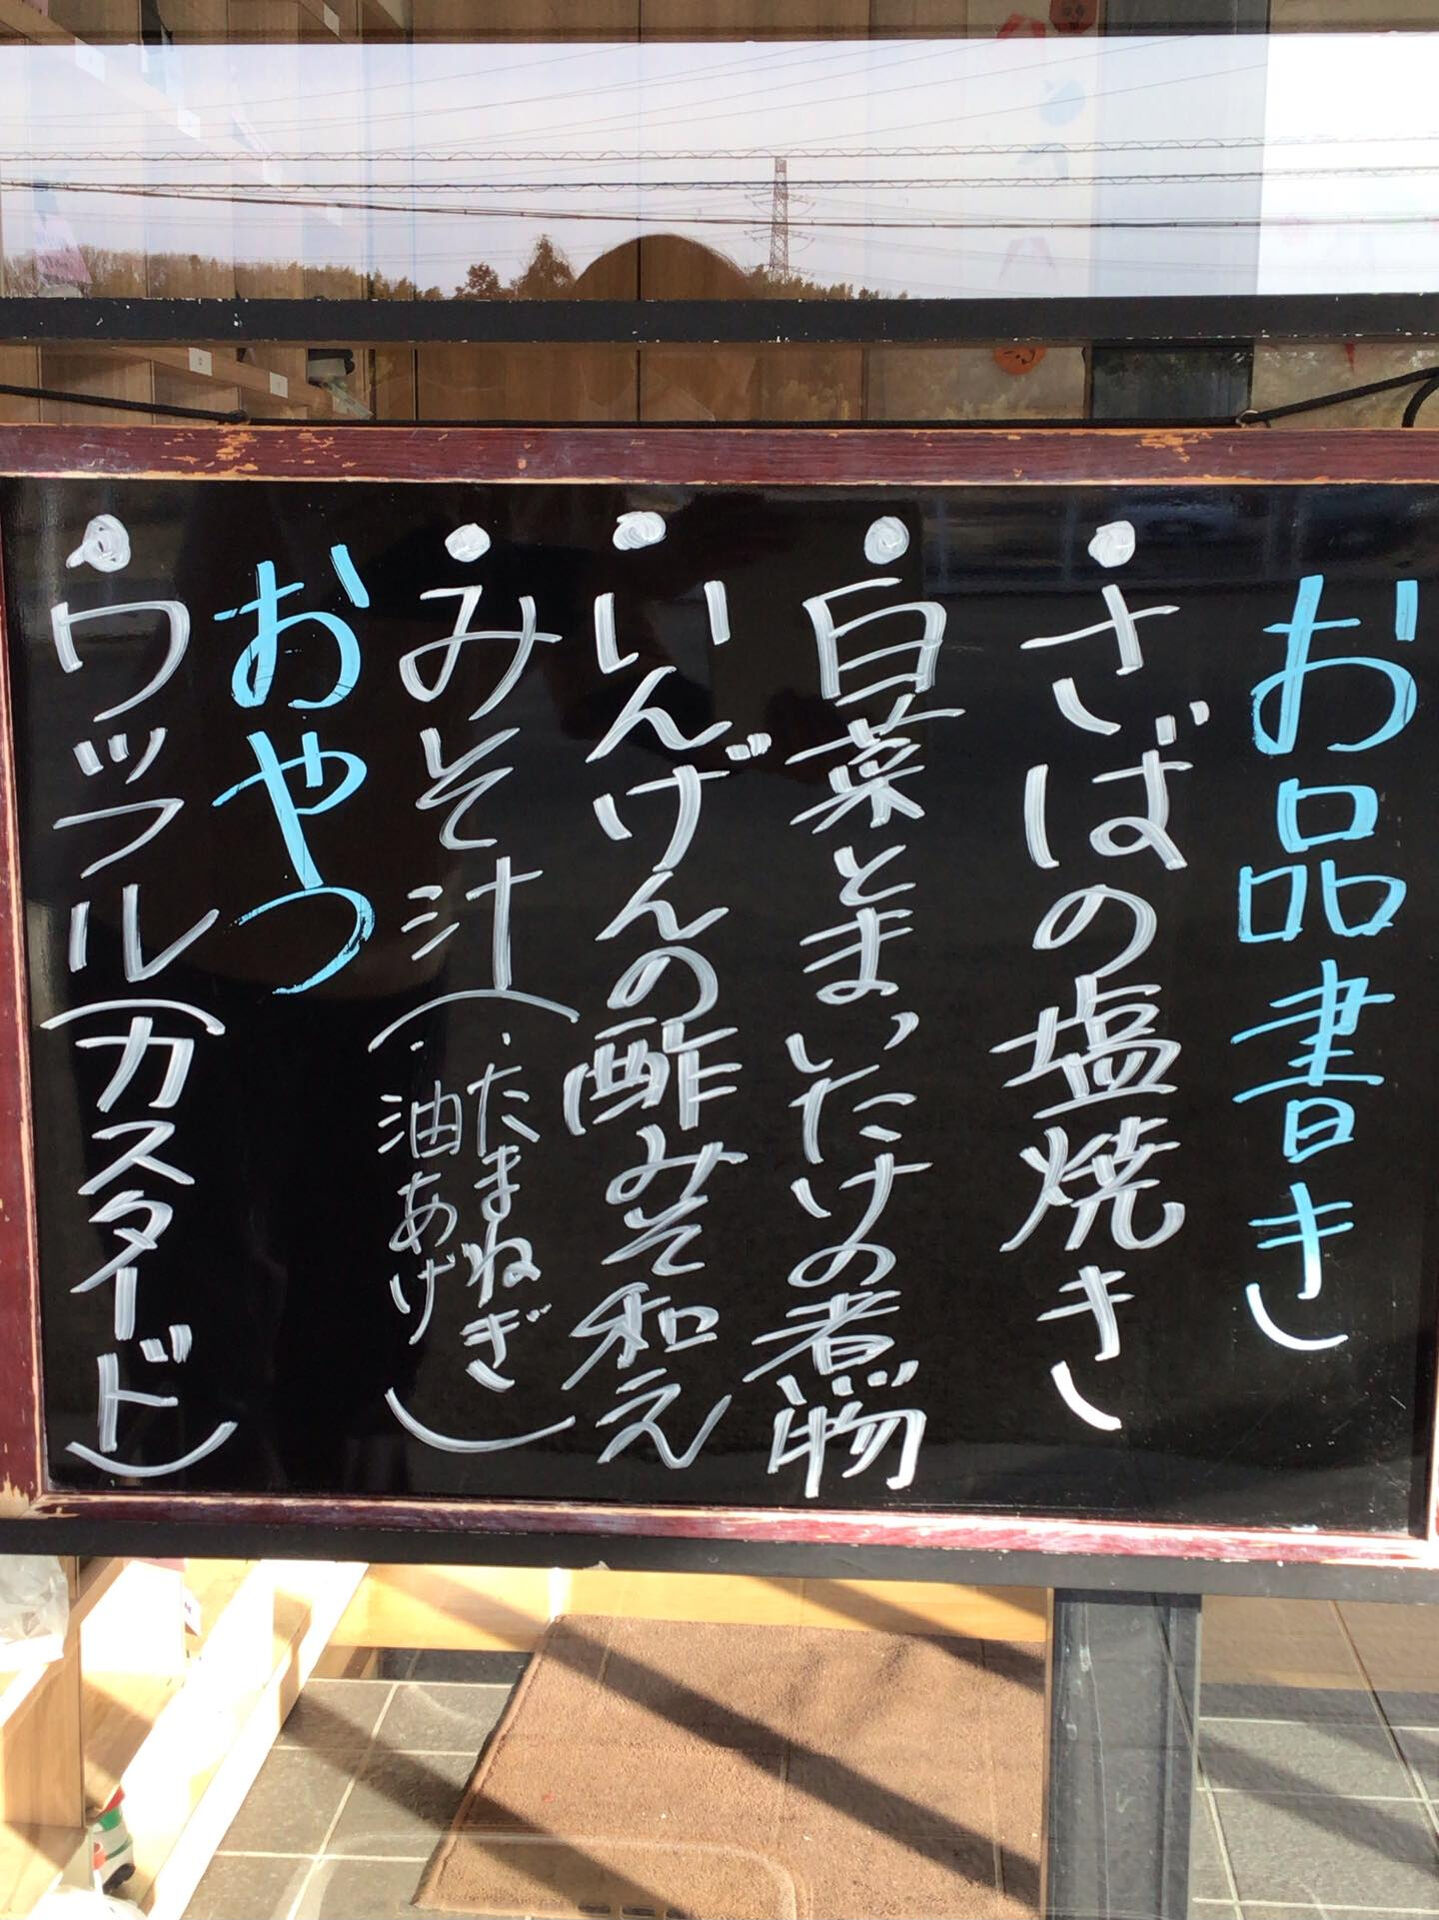 お品書き
・さばの塩焼き
・白菜とまいたけの煮物
・いんげんの酢みそ和え
・みそ汁(・たまねぎ
・油あげ)
おやつ
・ワッフル(カスタード)